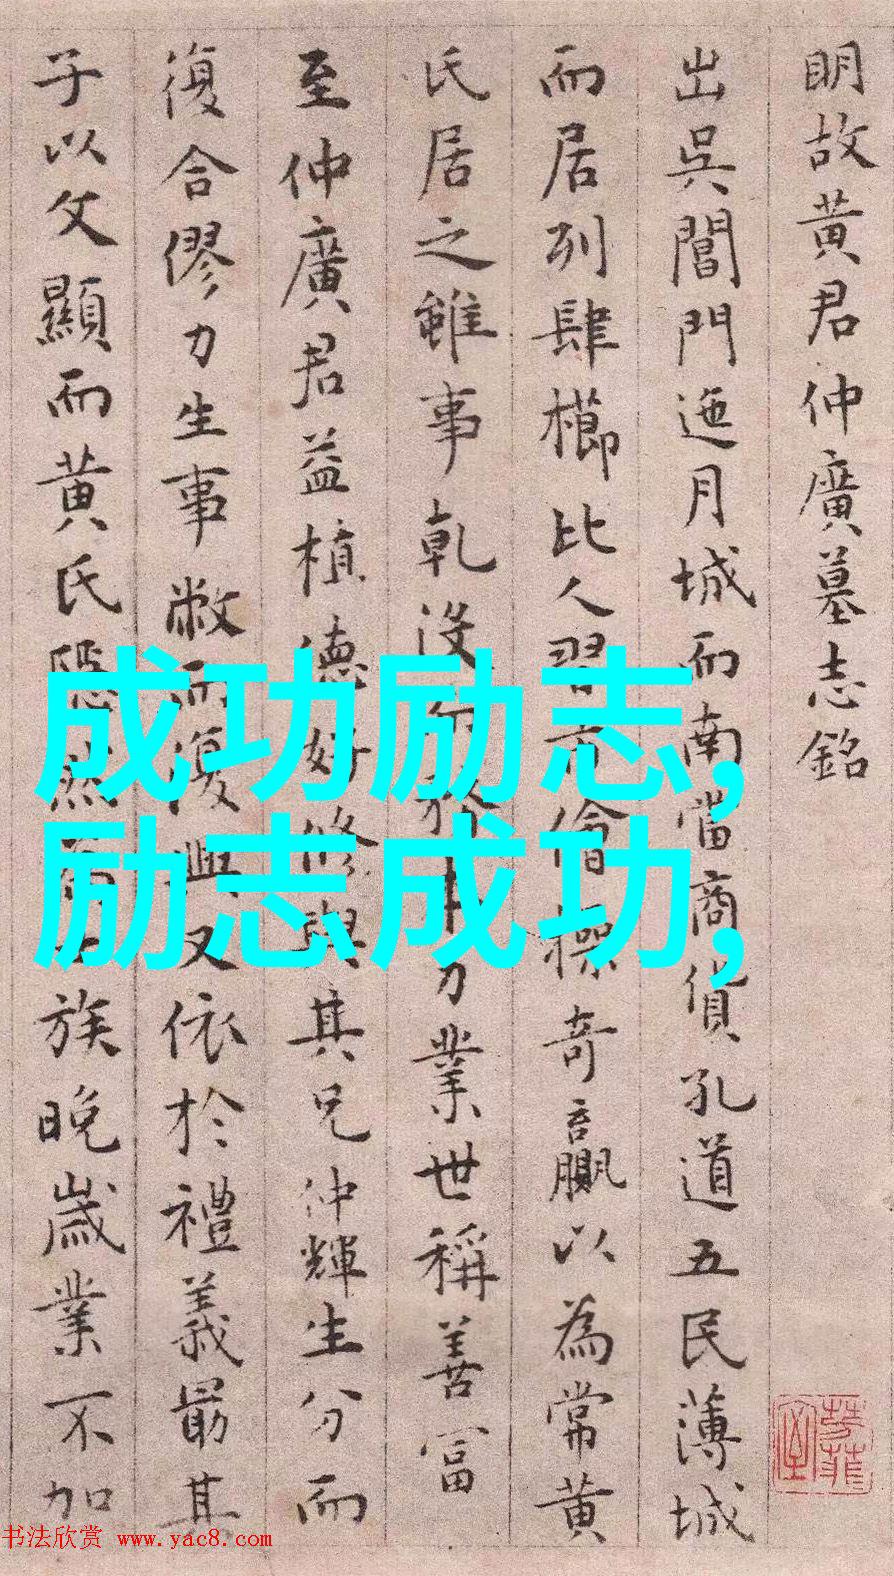 明故黄君仲廣墓志銘
出吳閶門迤月城而南當商貨孔道五民薄城
而居列肆櫛比人習市儈操奇贏以為常黄
氏居之雖事乾没力業世稱善富
至仲廣君益植德好修與其兄仲輝生分而
復合僇力生事敝而復興又依於禮義最其
子以文顯而黄氏隱然族晚歲業不加
成功励志,
励志成功,
书法欣赏 www.yac8.com